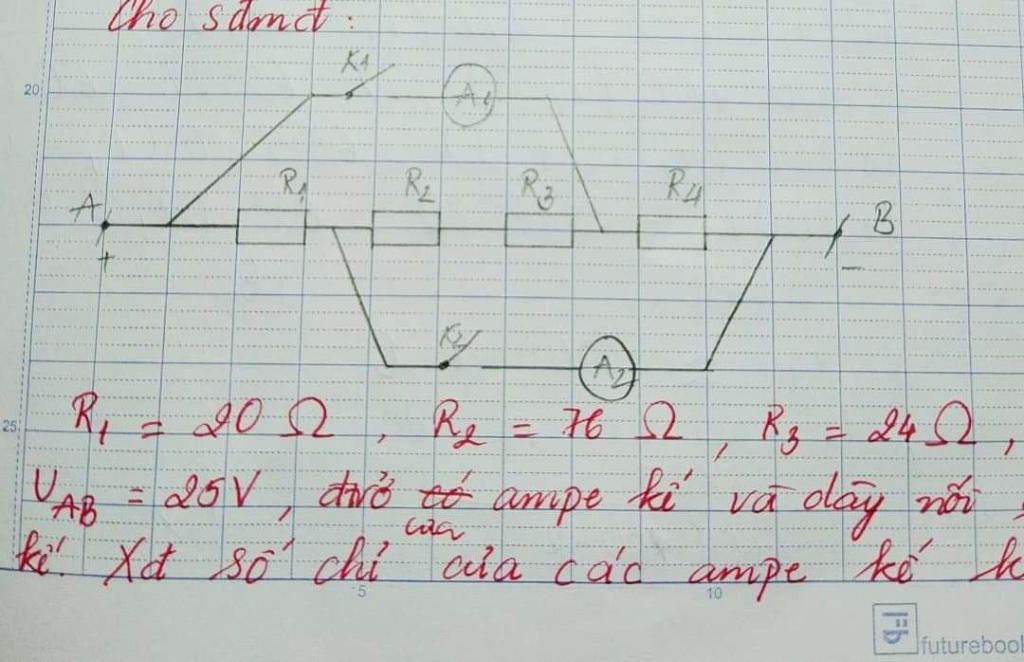 Cho sđmđ:
K1
20
A1
R1 R2 R3 R4
A B
+ -
K2
A2
R1 = 20 Ω, R2 = 76 Ω, R3 = 24 Ω,
25
UAB = 25V, ampe kế và dây nối
của
kế. Xđ số chỉ của các ampe kế k
5 10
futurebook